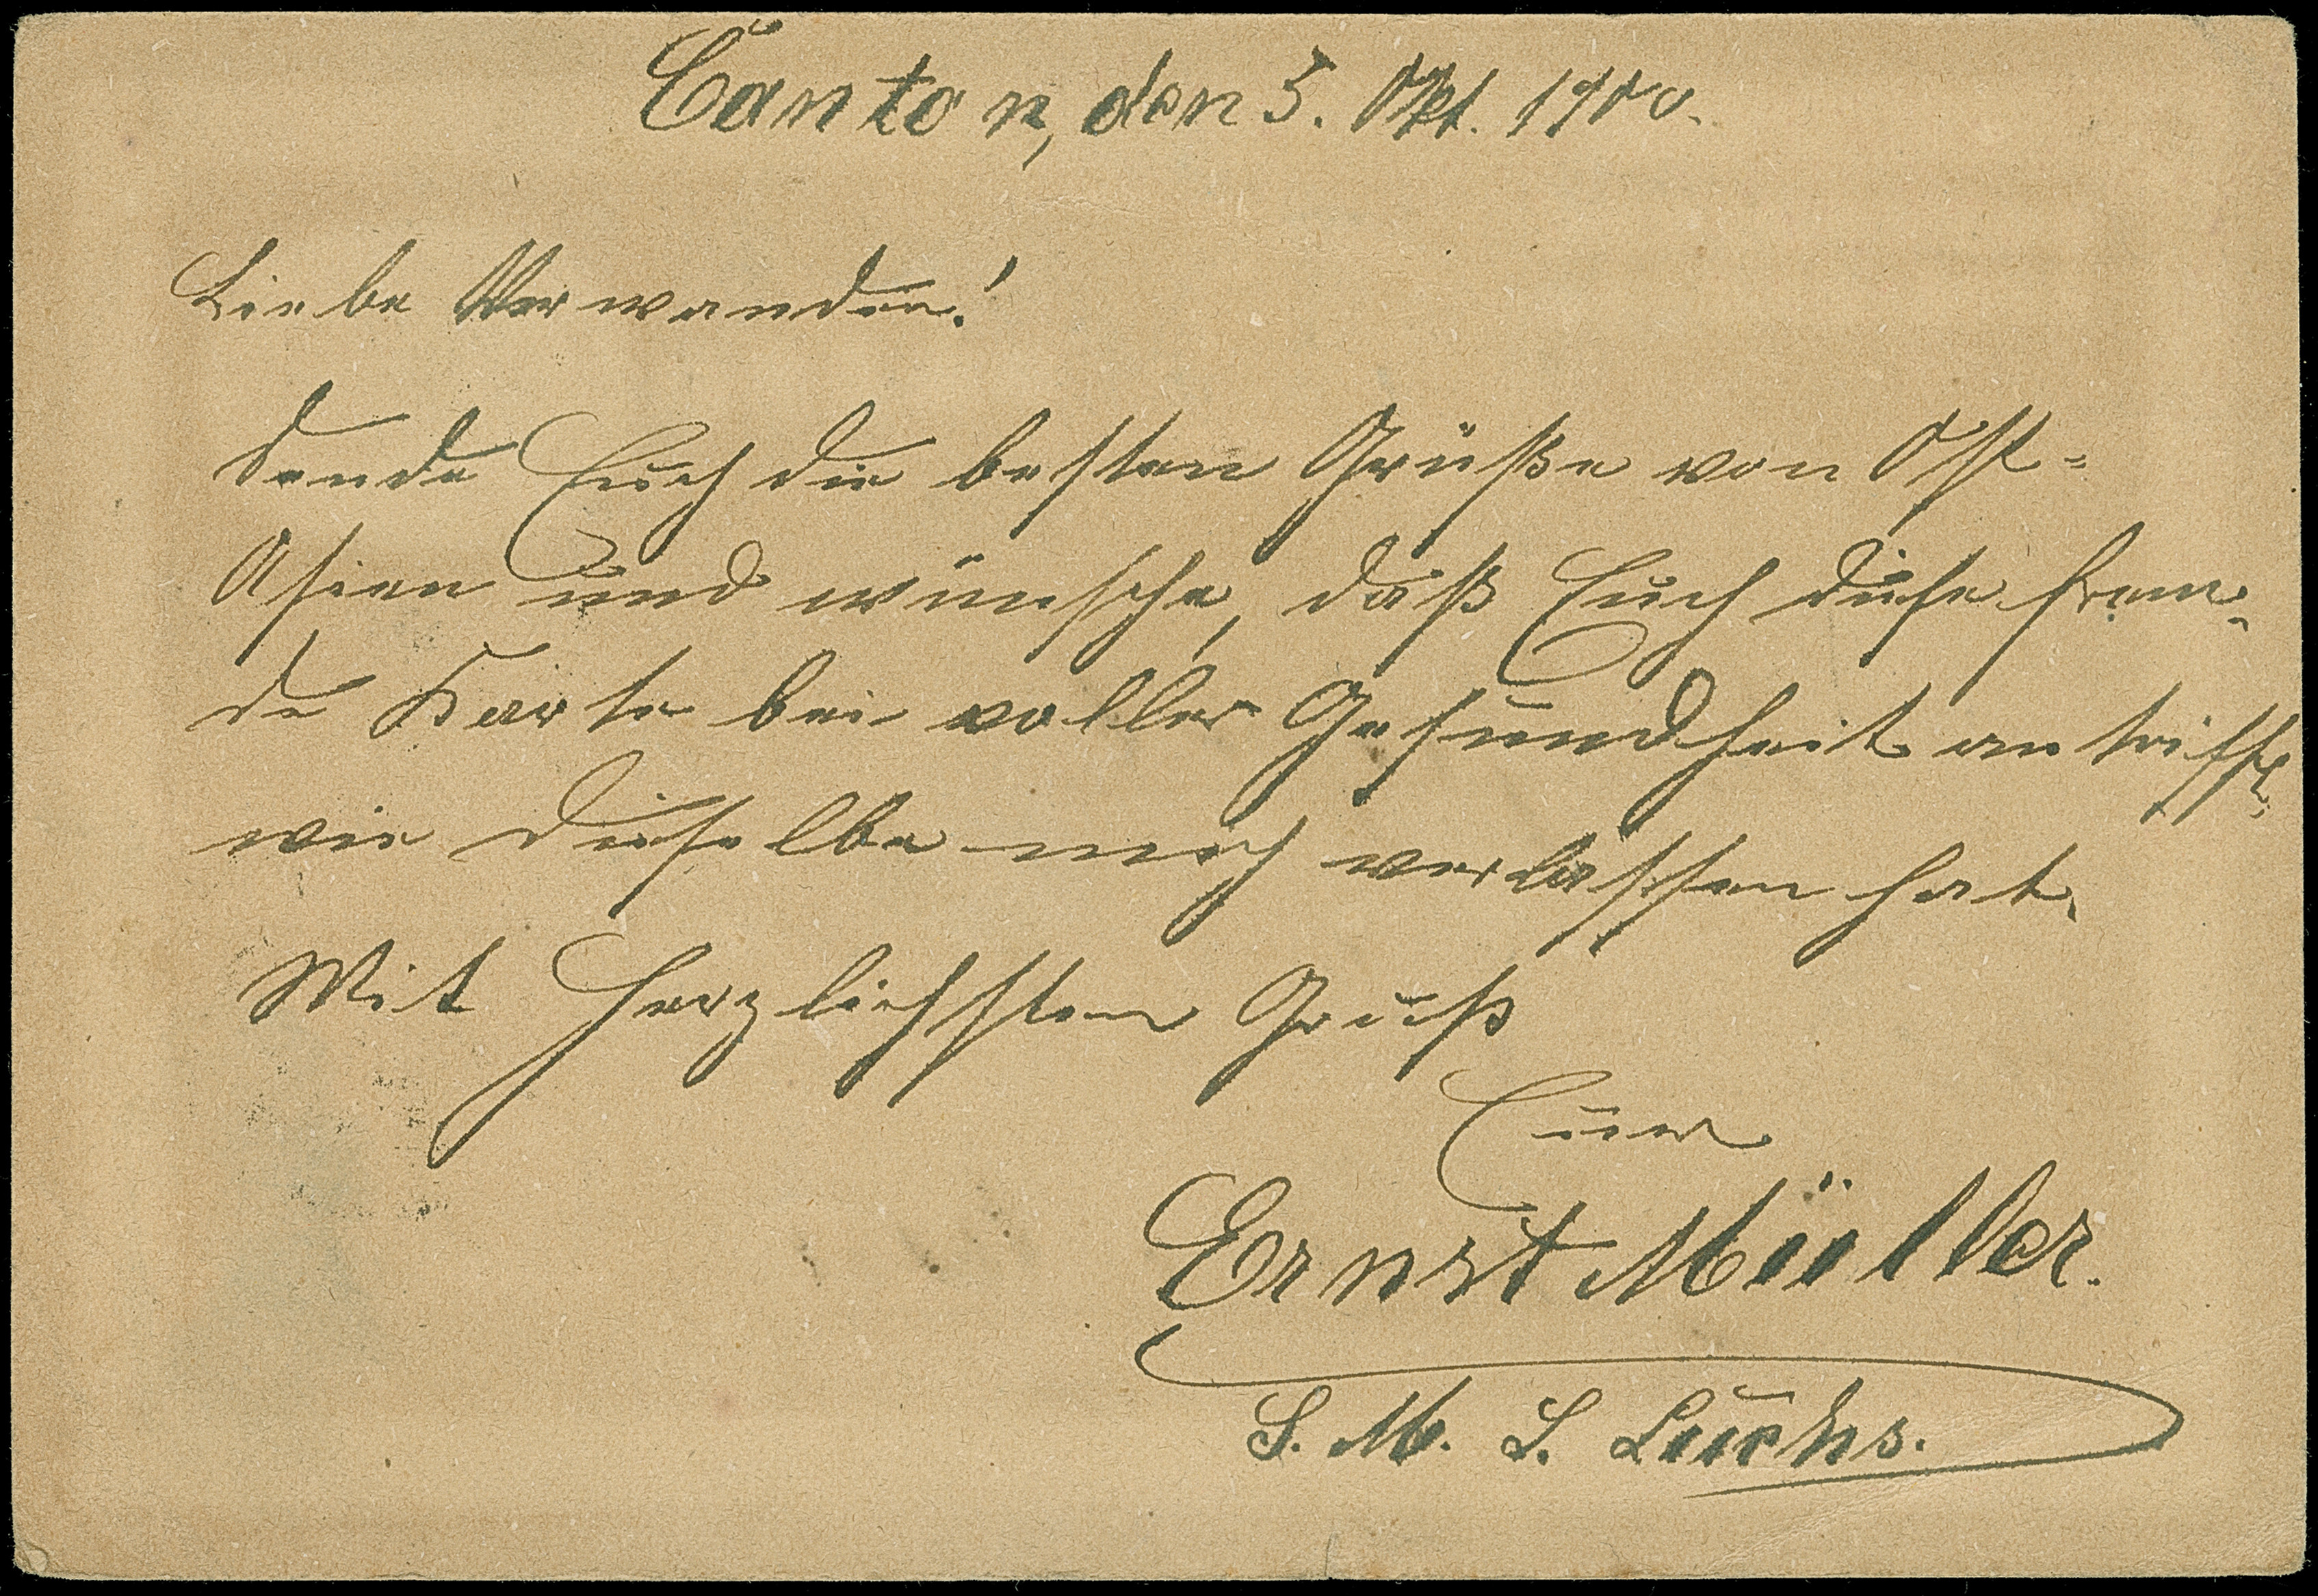 Canton, den 5. Okt. 1900.
Liebe Verwanden!
Sende Euch die besten Grüße von Ost-
Asien und wünsche, daß Euch diese frem-
de Karte bei voller Gesundheit antrifft,
wie dieselbe mich verlassen hat.
Mit herzlichsten Gruß
Euer
Ernst Müller.
S. M. S. Luchs.